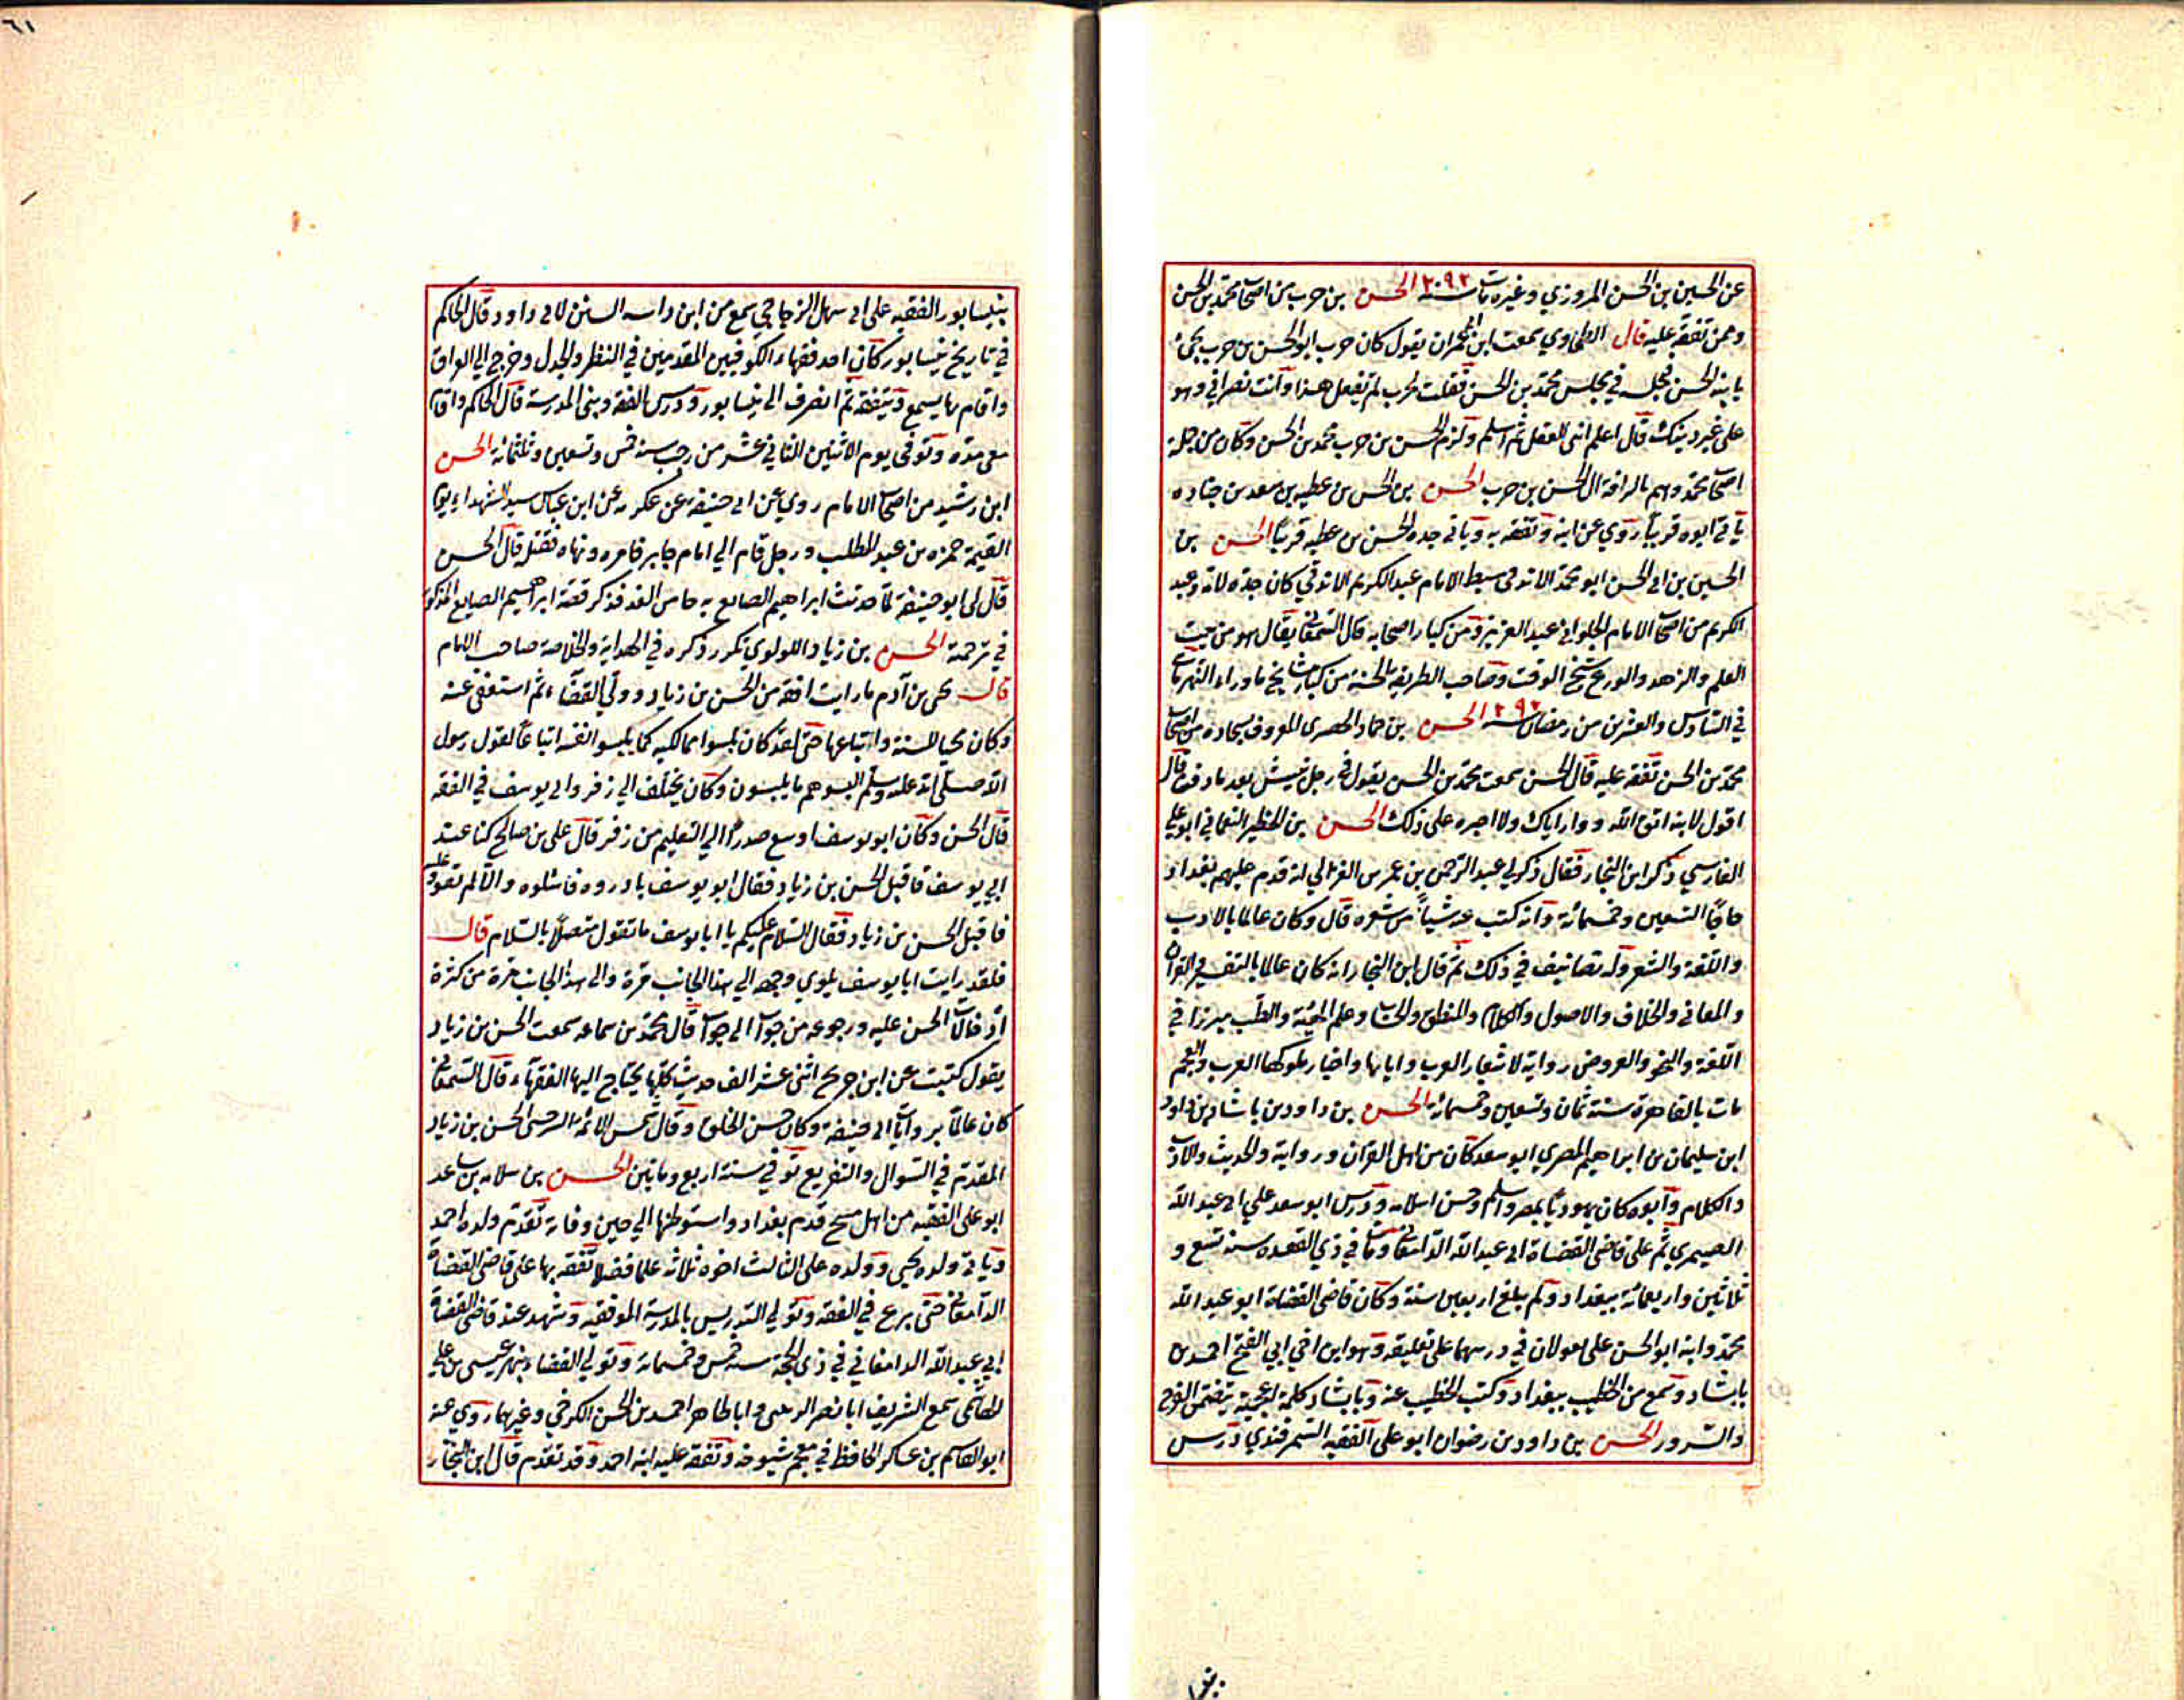 عن الحسين بن الحسن المروزي وغيره مات سنة ٢٠٩٢ الحسن بن حرب من اصحاب محمد بن الحسن
وممن تفقه عليه قال الطحاوي سمعت ابن ابي عمران يقول كان حرب ابو الحسن بن حرب يجئ
يا بنه الحسن فيجلسه في مجلس محمد بن الحسن فقلت لحرب لم تفعل هذا وانت نصراني وهو
على غير دينك قال اعلم ابني العقل ثم اسلم ولزم الحسن بن حرب محمد بن الحسن وكان من جملة
اصحاب محمد وهم بالرافقة ال الحسن بن حرب الحسن بن الحسن بن عطيه بن سعد بن جناده
يأتي ابوه قريباً روي عن ابيه وتفقه به ويأتي جده الحسن بن عطيه قريباً الحسن بن
الحسين بن ابي الحسن ابو محمد الاندقي سبط الامام عبد الكريم الاندقي كان جده لامه وعبد
الكريم من اصحاب الامام الحلواني عبد العزيز ومن كبار اصحابه قال السمعاني يقال هو من بيت
العلم والزهد والورع شيخ الوقت وصاحب الطريقة الحسنة من كبار مشايخ ماوراء النهر مات
في السادس والعشرين من رمضان سنة ٢٩٢ الحسن بن حماد الحضرمي المعروف بسجاده من اصحاب
محمد بن الحسن تفقه عليه قال الحسن سمعت محمد بن الحسن يقول في رجل نبش بعد ما دفن قال
اقول لابنه اتق الله ووار اباك ولا اجبره على ذلك الحسن بن الخطير النعماني ابو علي
الفارسي ذكره ابن النجار فقال ذكر لي عبد الرحمن بن عمر بن الغزالي انه قدم عليهم بغداد
حاجا التسعين وخمسمائة وانه كتب عنه شيأ من شعره قال وكان عالما بالادب
واللغة والشعر وله تصانيف في ذلك ثم قال ابن النجار انه كان عالما بالتفسير القرآن
والمعاني والخلاف والاصول والكلام والمنطق والحساب وعلم الهيئة والطب مبرزا في
اللغة والنحو والعروض رواية لاشعار العرب وايامها واخبار ملوكها العرب والعجم
مات بالقاهرة سنة ثمان وتسعين وخمسمائة الحسن بن داود بن بابشاد بن داود
ابن سليمان بن ابراهيم المصري ابو سعد كان من اهل القرآن ورواية والحديث والادب
والكلام وابوه كان يهوديا بمصر واسلم وحسن اسلامه ودرس ابو سعد علي ابي عبد الله
الصيمري ثم على قاضي القضاة ابي عبد الله الدامغاني ومات في ذي القعده سنة تسع و
ثلاثين واربعمائة ببغداد ولم يبلغ اربعين سنة وكان قاضي القضاة ابو عبد الله
محمد وابنه ابو الحسن على يعولان في درسهما على تعليقه وهو ابن اخي ابي الفتح احمد بن
بابشاد وسمع من الخطيب ببغداد وكتب الخطيب عنه وبابشاد كلمة اعجمية يتضمن الفرح
والسرور الحسن بن داود بن رضوان ابو على الفقيه السمرقندي درس
بنيسابور الفقيه على ابي سهل الزجاجي سمع من ابن داسه السنن لابي داود قال الحاكم
في تاريخ نيسابور كان احد فقهاء الكوفيين المقدمين في النظر والجدل وخرج الي العراق
واقام بها يسمع ويتفقه ثم انصرف الى نيسابور ودرس الفقه وبنى المدرسة قال الحاكم واقام
معي مدة وتوفي يوم الاثنين الثاني عشر من رجب سنة خمس وتسعين وثلثمائة الحسن
ابن رشيد من اصحاب الامام روي عن ابي حنيفة عن عكرمه عن ابن عباس سيد الشهداء يوم
القيمة حمزه بن عبد المطلب ورجل قام الي امام جاير فامره ونهاه فقتله قال الحسن
قال لي ابو حنيفة لما حدثت ابراهيم الصايغ به جاء من الغد فذكر قصة ابراهيم الصايغ المذكور
في ترجمته الحسن بن زياد اللولوي تكرر ذكره في الهداية والخلاصة صاحب الامام
قال يحى بن آدم ما رايت افقه من الحسن بن زياد وولي القضاء ثم استعفى عنه
وكان محبا للسنة واتباعها حتى لقد كان يلبسوا مماليكه كما يلبسوا نفسه اتباعاً لقول رسول
الله صلى الله عليه وسلم البسوهم ما يلبسون وكان يختلف الي زفر وابي يوسف في الفقه
قال الحسن وكان ابو يوسف اوسع صدراً الي التعليم من زفر قال على بن صالح كنا عند
ابي يوسف فاقبل الحسن بن زياد فقال ابو يوسف بادروه فاسئلوه والا لم تقووا عليه
فاقبل الحسن بن زياد فقال السلام عليكم يا ابا يوسف ما تقول متصلاً بالسلام قال
فلقد رايت ابا يوسف يلوي وجهه الي هذا الجانب مرة والى هذا الجانب مرة من كثرة
ادخالات الحسن عليه ورجوعه من جواب الي جواب قال محمد بن سماعه سمعت الحسن بن زياد
يقول كتبت عن ابن جريح اثنى عشر الف حديث كلها يحتاج اليها الفقهاء قال السمعاني
كان عالما بروايات ابي حنيفة وكان حسن الخلق وقال شمس الائمة السرخسى الحسن بن زياد
المقدم في السوال والتفريع توفي سنة اربع ومائتين الحسن بن سلامه بن ساعد
ابو على الفقيه من اهل منبج قدم بغداد واستوطنها الي حين وفاته تقدم ولده احمد
وياتي ولده يحيى وولده على الثالث اخوه ثلاثه علما فضلا تفقه بها على قاضي القضاة
الدامغاني حتى برع في الفقه وتولي التدريس بالمدرسة الموفقيه وشهد عند قاضي القضاة
ابي عبد الله الدامغاني في ذي الحجة سنة خمس وخمسمائة وتولي القضاء بنهر عيسى بن علي
الهاشمي سمع الشريف ابا نصر الزينبي وابا طاهر احمد بن الحسن الكرخي وغيرهما روي عنه
ابو القاسم بن عساكر الحافظ في معجم شيوخه وتفقه عليه ابنه احمد وقد تقدم قال ابن النجار
٦١